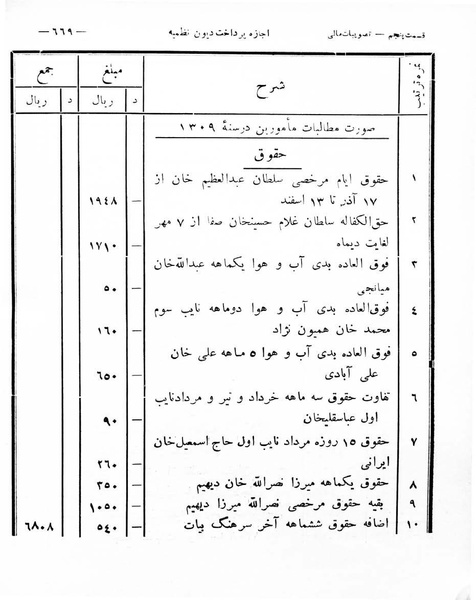 قسمت پنجم — تصویبات مالی
اجازه پرداخت دیون نظمیه
— ۶۶۹ —
نمره ترتیب
شرح
مبلغ
جمع
د
ریال
د
ریال
صورت مطالبات مأمورین درسنهٔ ۱۳۰۹
حقوق
۱ حقوق ایام مرخصی سلطان عبدالعظیم خان از
۱۷ آذر تا ۱۳ اسفند — ۱۹۴۸
۲ حق‌الکفاله سلطان غلام حسینخان صفا از ۷ مهر
لغایت دیماه — ۱۷۱۰
۳ فوق العاده بدی آب و هوا یکماهه عبدالله‌خان
میانجی — ۵۰
۴ فوق‌العاده بدی آب و هوا دوماهه نایب سوم
محمد خان همیون نژاد — ۱۶۰
۵ فوق العاده بدی آب و هوا ۵ ماهه علی خان
علی آبادی — ۶۵۰
۶ تفاوت حقوق سه ماهه خرداد و تیر و مردادنایب
اول عباسقلیخان — ۹۰
۷ حقوق ۱۵ روزه مرداد نایب اول حاج اسمعیل‌خان
ایرانی — ۲۶۰
۸ حقوق یکماهه میرزا نصرالله خان دیهیم — ۳۵۰
۹ بقیه حقوق مرخصی نصرالله میرزا دیهیم — ۱۰۵۰
۱۰ اضافه حقوق ششماهه آخر سرهنگ بیات — ۵۴۰ ۶۸۰۸